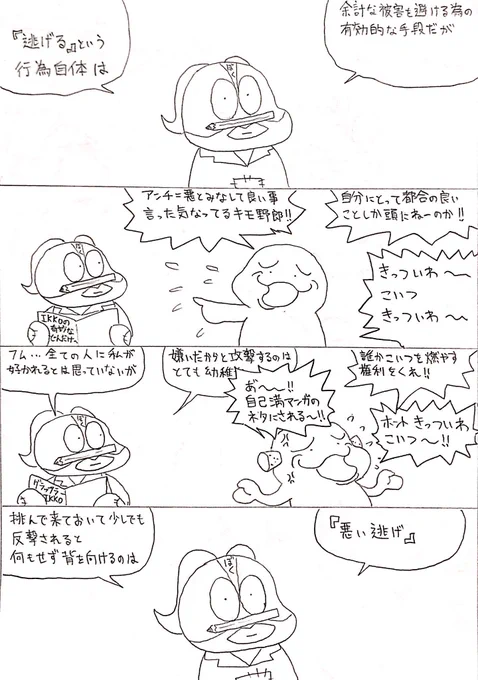 『逃げる』という
行為自体は
余計な被害を避ける為の
有効的な手段だが
ぼく
アンチ=悪とみなして良い事
言った気なってるキモ野郎!!
自分にとって都合の良い
ことしか頭にねーのか!!
きっついわ〜
こいつ
きっついわ〜
ぼく
IKKOの
フム…全ての人に私が
好かれるとは思っていないが
嫌いだカタと攻撃するのは
とても幼稚
あ〜〜!!
自己満マンガの
ネタにされる〜!!
誰かこいつを燃やす
権利をくれ!!
ホントきっついわ
こいつ〜!!
ぼく
グラップラー
IKKO
挑んで来ておいて少しでも
反撃されると
何もせず背を向けるのは
『悪い逃げ』
ぼく